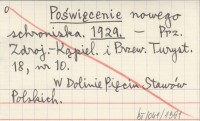 Poświęcenie nowego
schroniska. 1929. — Prz.
Zdroj.-Kąpiel. i Przew. Turyst.
18, nr 10.
W Dolinie Pięciu Stawów
Polskich.